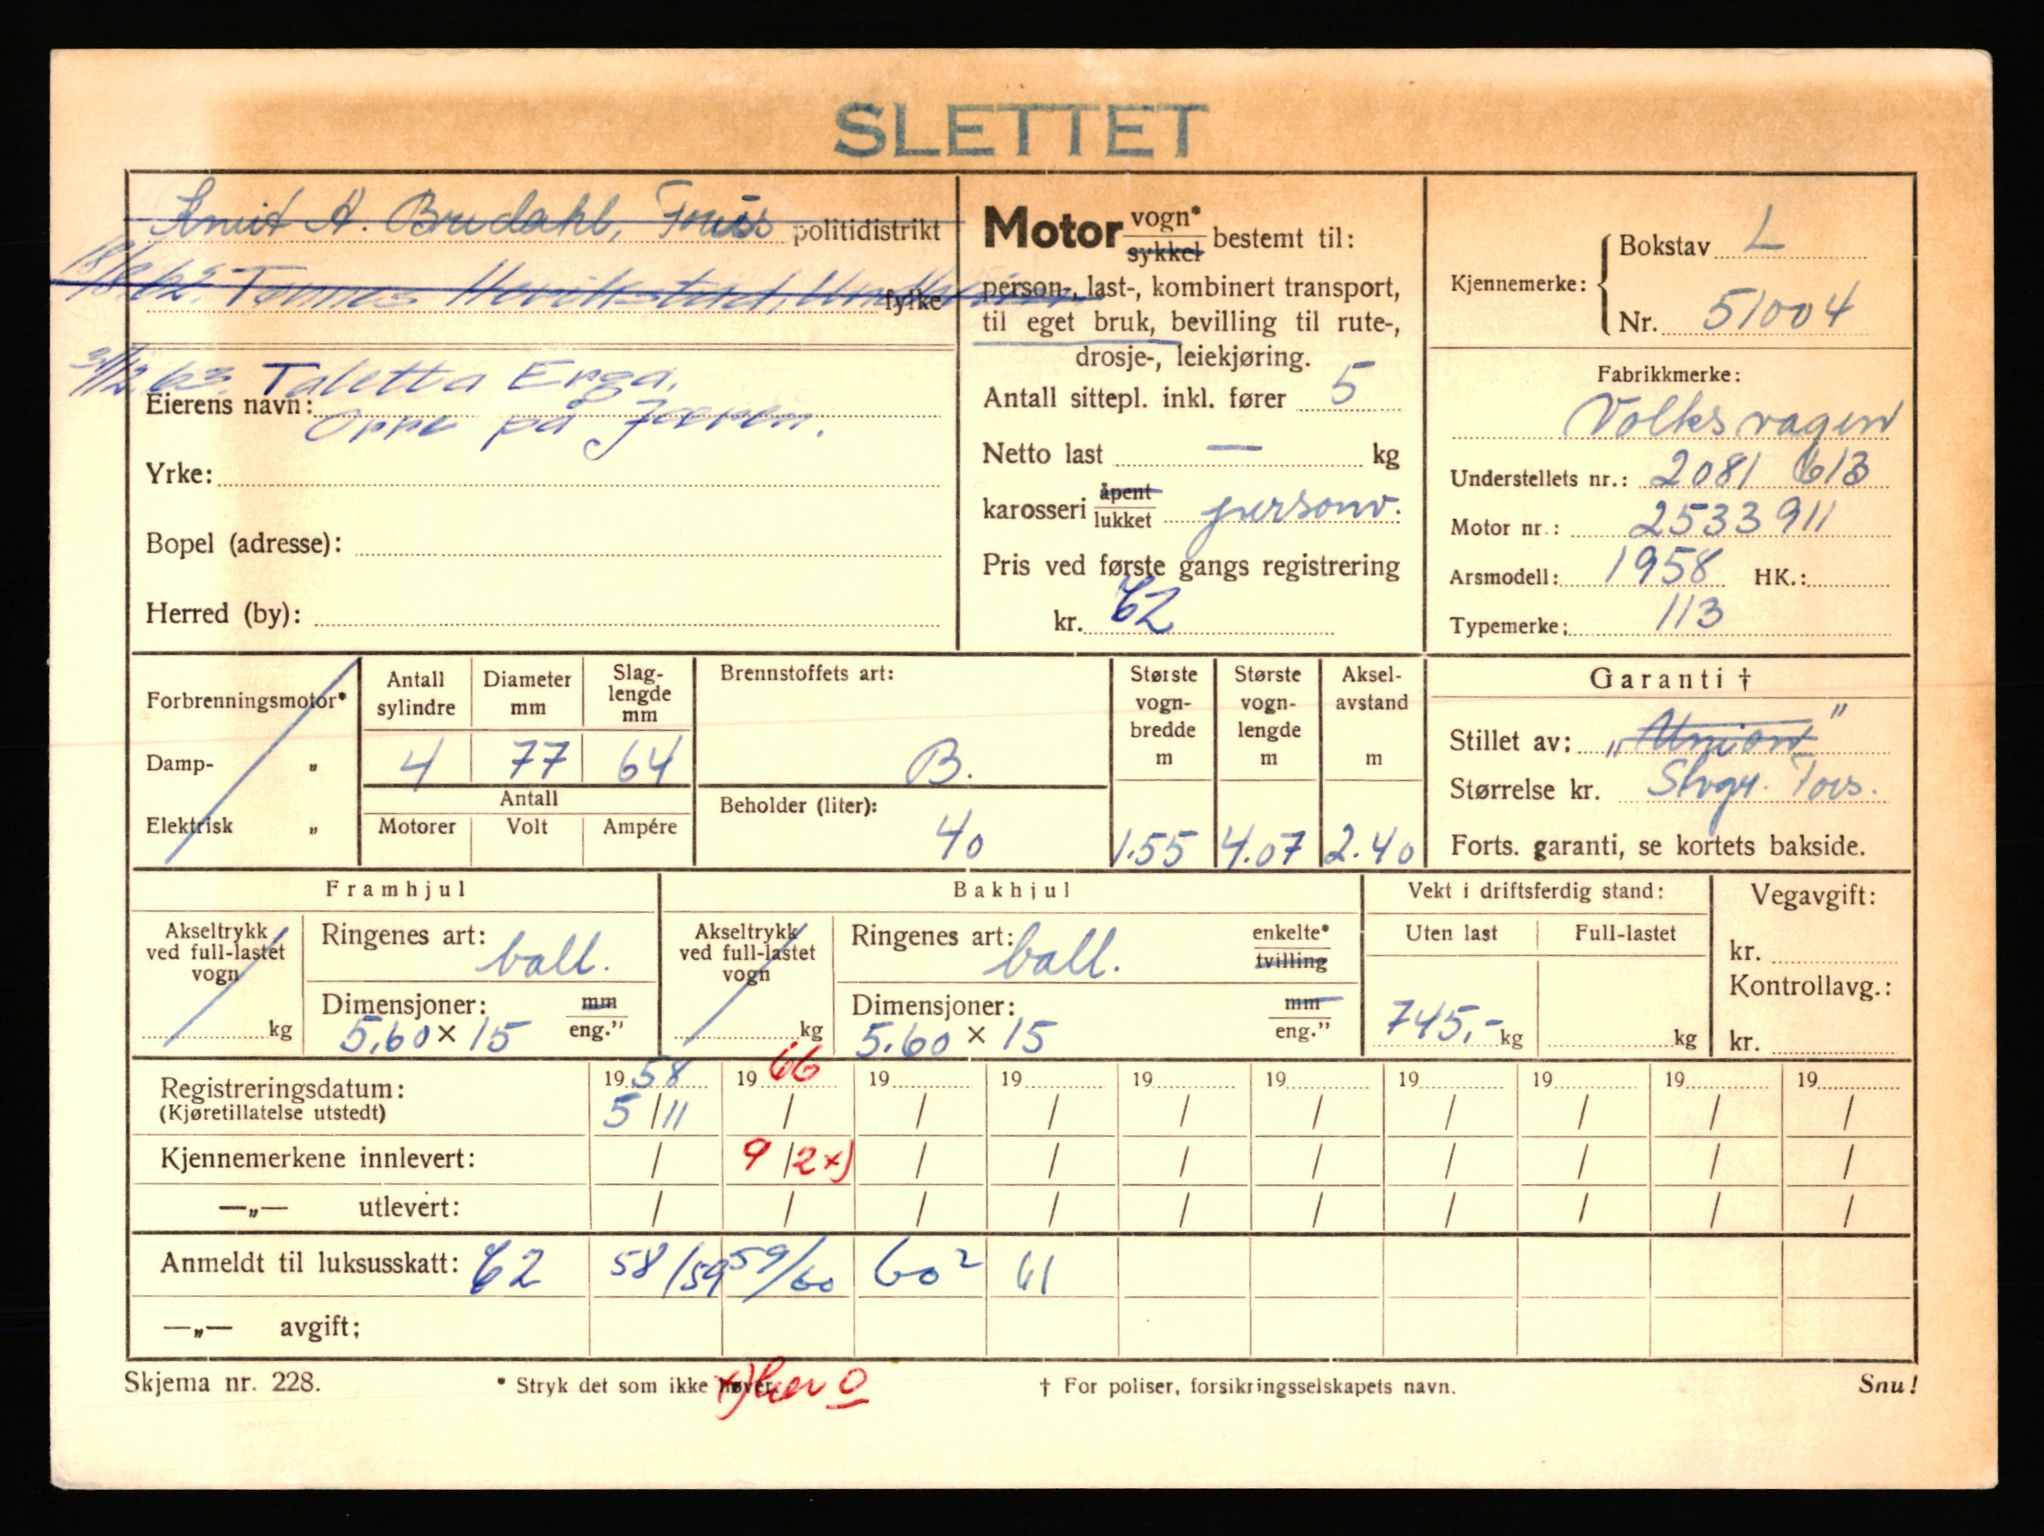 SLETTET
Knut A. Brudahl, politidistrikt
fylke
63 Taletta Erga,
Eierens navn:
Orre på Jæren.
Yrke:
Bopel (adresse):
Herred (by):
Motor vogn* sykkel bestemt til:
person-, last-, kombinert transport,
til eget bruk, bevilling til rute-,
drosje-, leiekjøring.
Antall sittepl. inkl. fører 5
Netto last — kg
karosseri åpent lukket personv.
Pris ved første gangs registrering
kr. 62
Kjennemerke: Bokstav L
Nr. 51004
Fabrikkmerke:
Volksvagen
Understellets nr.: 2081 613
Motor nr.: 2533911
Arsmodell: 1958 HK.:
Typemerke: 113
Forbrenningsmotor*
Damp- „
Elektrisk „
Antall sylindre
Diameter mm
Slag-lengde mm
4 77 64
Antall
Motorer Volt Ampére
Brennstoffets art:
B.
Beholder (liter):
40
Største vogn-bredde m
1.55
Største vogn-lengde m
4.07
Aksel-avstand m
2.40
Garanti †
Stillet av: „Union"
Størrelse kr.
Forts. garanti, se kortets bakside.
Framhjul
Akseltrykk ved full-lastet vogn
kg
Ringenes art: ball.
Dimensjoner: mm eng."
5.60 × 15
Bakhjul
Akseltrykk ved full-lastet vogn
kg
Ringenes art: ball.
enkelte* tvilling
Dimensjoner: mm eng."
5.60 × 15
Vekt i driftsferdig stand:
Uten last Full-lastet
745,- kg kg
Vegavgift:
kr.
Kontrollavg.:
kr.
Registreringsdatum: 19 58 19 66 19 19 19 19 19 19 19 19
(Kjøretillatelse utstedt) 5/11 / / / / / / / / /
Kjennemerkene innlevert: / 9/2 x) / / / / / / / /
—„— utlevert: / / / / / / / / / /
Anmeldt til luksusskatt: 62 58/59 59/60 60² 61
—„— avgift:
Skjema nr. 228.
* Stryk det som ikke høver.
x) her 0
† For poliser, forsikringsselskapets navn.
Snu!